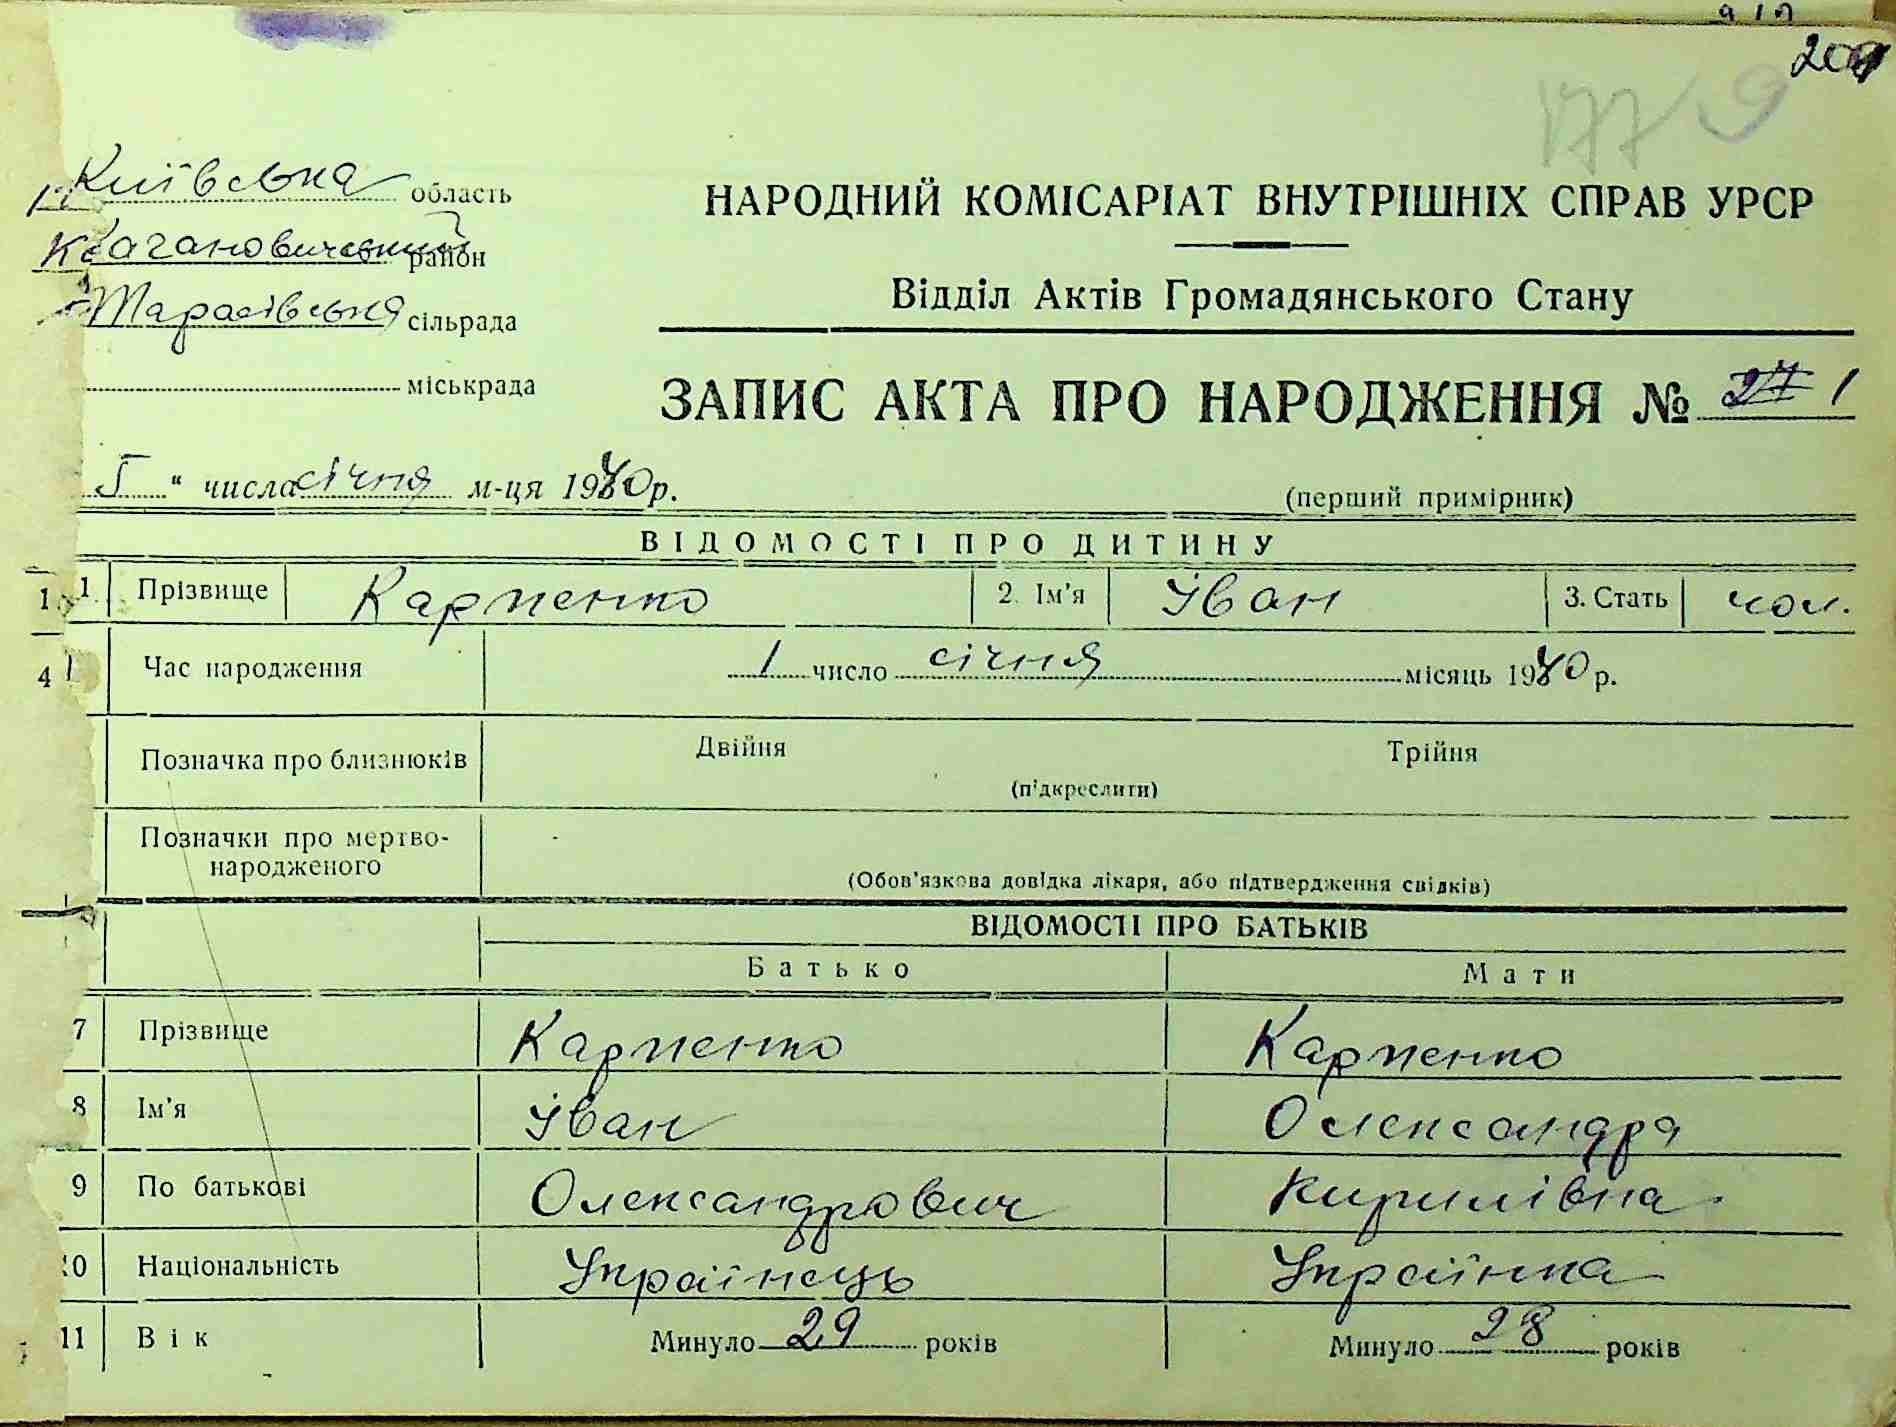 Київська область
Кагановичський район
Тарасівська сільрада
міськрада
НАРОДНИЙ КОМІСАРІАТ ВНУТРІШНІХ СПРАВ УРСР
Відділ Актів Громадянського Стану
ЗАПИС АКТА ПРО НАРОДЖЕННЯ № 27 1
5 " числа січня м-ця 1940 р.
(перший примірник)
ВІДОМОСТІ ПРО ДИТИНУ
1 Прізвище Карпенко 2. Ім'я Іван 3. Стать чол.
4 Час народження 1 число січня місяць 1940 р.
Позначка про близнюків Двійня Трійня
(підкреслити)
Позначки про мертво-
народженого
(Обов'язкова довідка лікаря, або підтвердження свідків)
ВІДОМОСТІ ПРО БАТЬКІВ
Батько Мати
7 Прізвище Карпенко Карпенко
8 Ім'я Іван Олександра
9 По батькові Олександрович Кирилівна
10 Національність Українець Українка
11 Вік Минуло 29 років Минуло 28 років